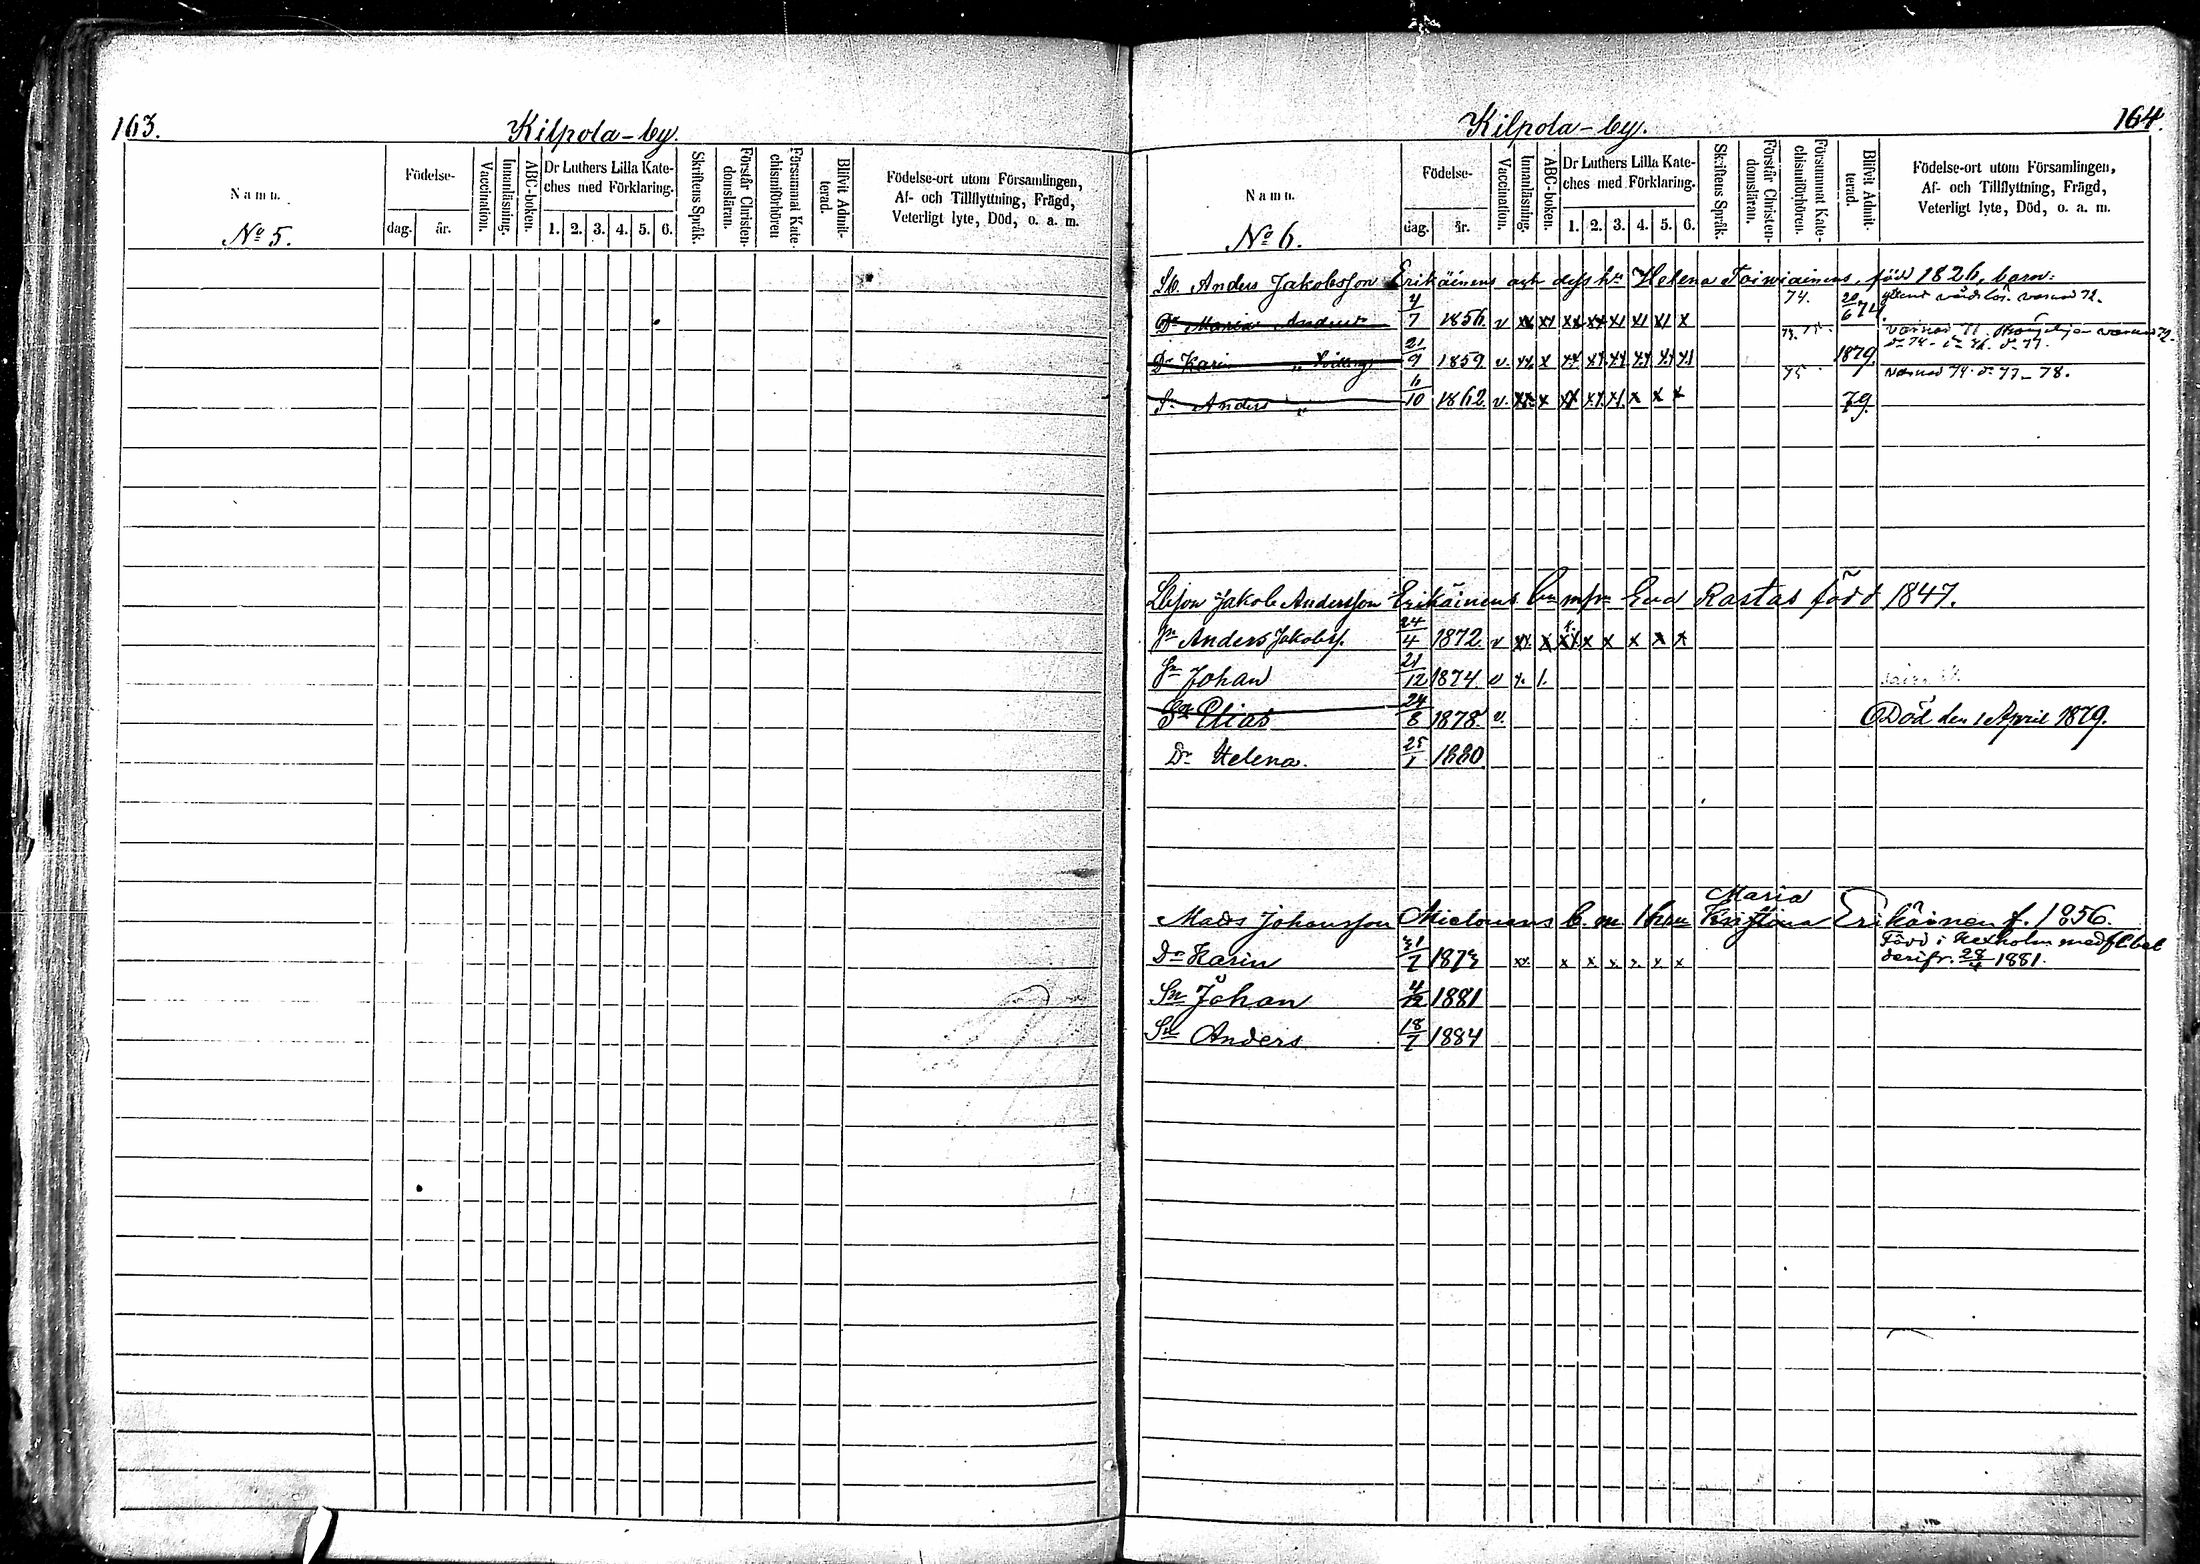 163.
Kilpola-by.
Namn.
Födelse-
dag.
år.
Vaccination.
Innanläsning.
ABC-boken.
Dr Luthers Lilla Kate-
ches med Förklaring.
1. 2. 3. 4. 5. 6.
Skriftens Språk.
Förstår Christen-
domsläran.
Försummat Kate-
chismiförhören
Blifvit Admit-
terad.
Födelse-ort utom Församlingen,
Af- och Tillflyttning, Frägd,
Veterligt lyte, Död, o. a. m.
No 5.
164.
Kilpola-by.
Namn.
Födelse-
dag.
år.
Vaccination.
Innanläsning.
ABC-boken.
Dr Luthers Lilla Kate-
ches med Förklaring.
1. 2. 3. 4. 5. 6.
Skriftens Språk.
Förstår Christen-
domsläran.
Försummat Kate-
chismiförhören.
Blifvit Admit-
terad.
Födelse-ort utom Församlingen,
Af- och Tillflyttning, Frägd,
Veterligt lyte, Död, o. a. m.
No 6.
Anders Jakobsson Erikäinens och dess h:u Helena Toiviainens, född 1826, barn:
Dr Maria Andersdr 4/7 1856 v xx x xx xx x x x x 74. 20/6 74. varnad 72.
Dr Karin " 21/9 1859 v. xx x xx xx xx xx xx xx 1879. varnad 72.
Sn Anders " 6/10 1862 v. xx x xx xx xx x x x 75 79. varnad 74. 77-78.
Jakob Andersson Erikäinens b. m. Eva Rastas född 1847.
Sn Anders Jakobss. 24/4 1872. v xx x xx x x x x x
Sn Johan 21/12 1874. v x. 1.
Sn Elias 24/8 1878. v. Död den 1 April 1879.
Dr Helena. 25/1 1880.
Maria
Mads Johansson Mielonens b. m. h:u Kristina Erikäinen f. 1856.
Dr Karin 31/7 1873 xx x x x x x x Född i Kexholm med fl. bet
derifr. 28/4 1881.
Sn Johan 4/12 1881
Sn Anders 18/7 1884